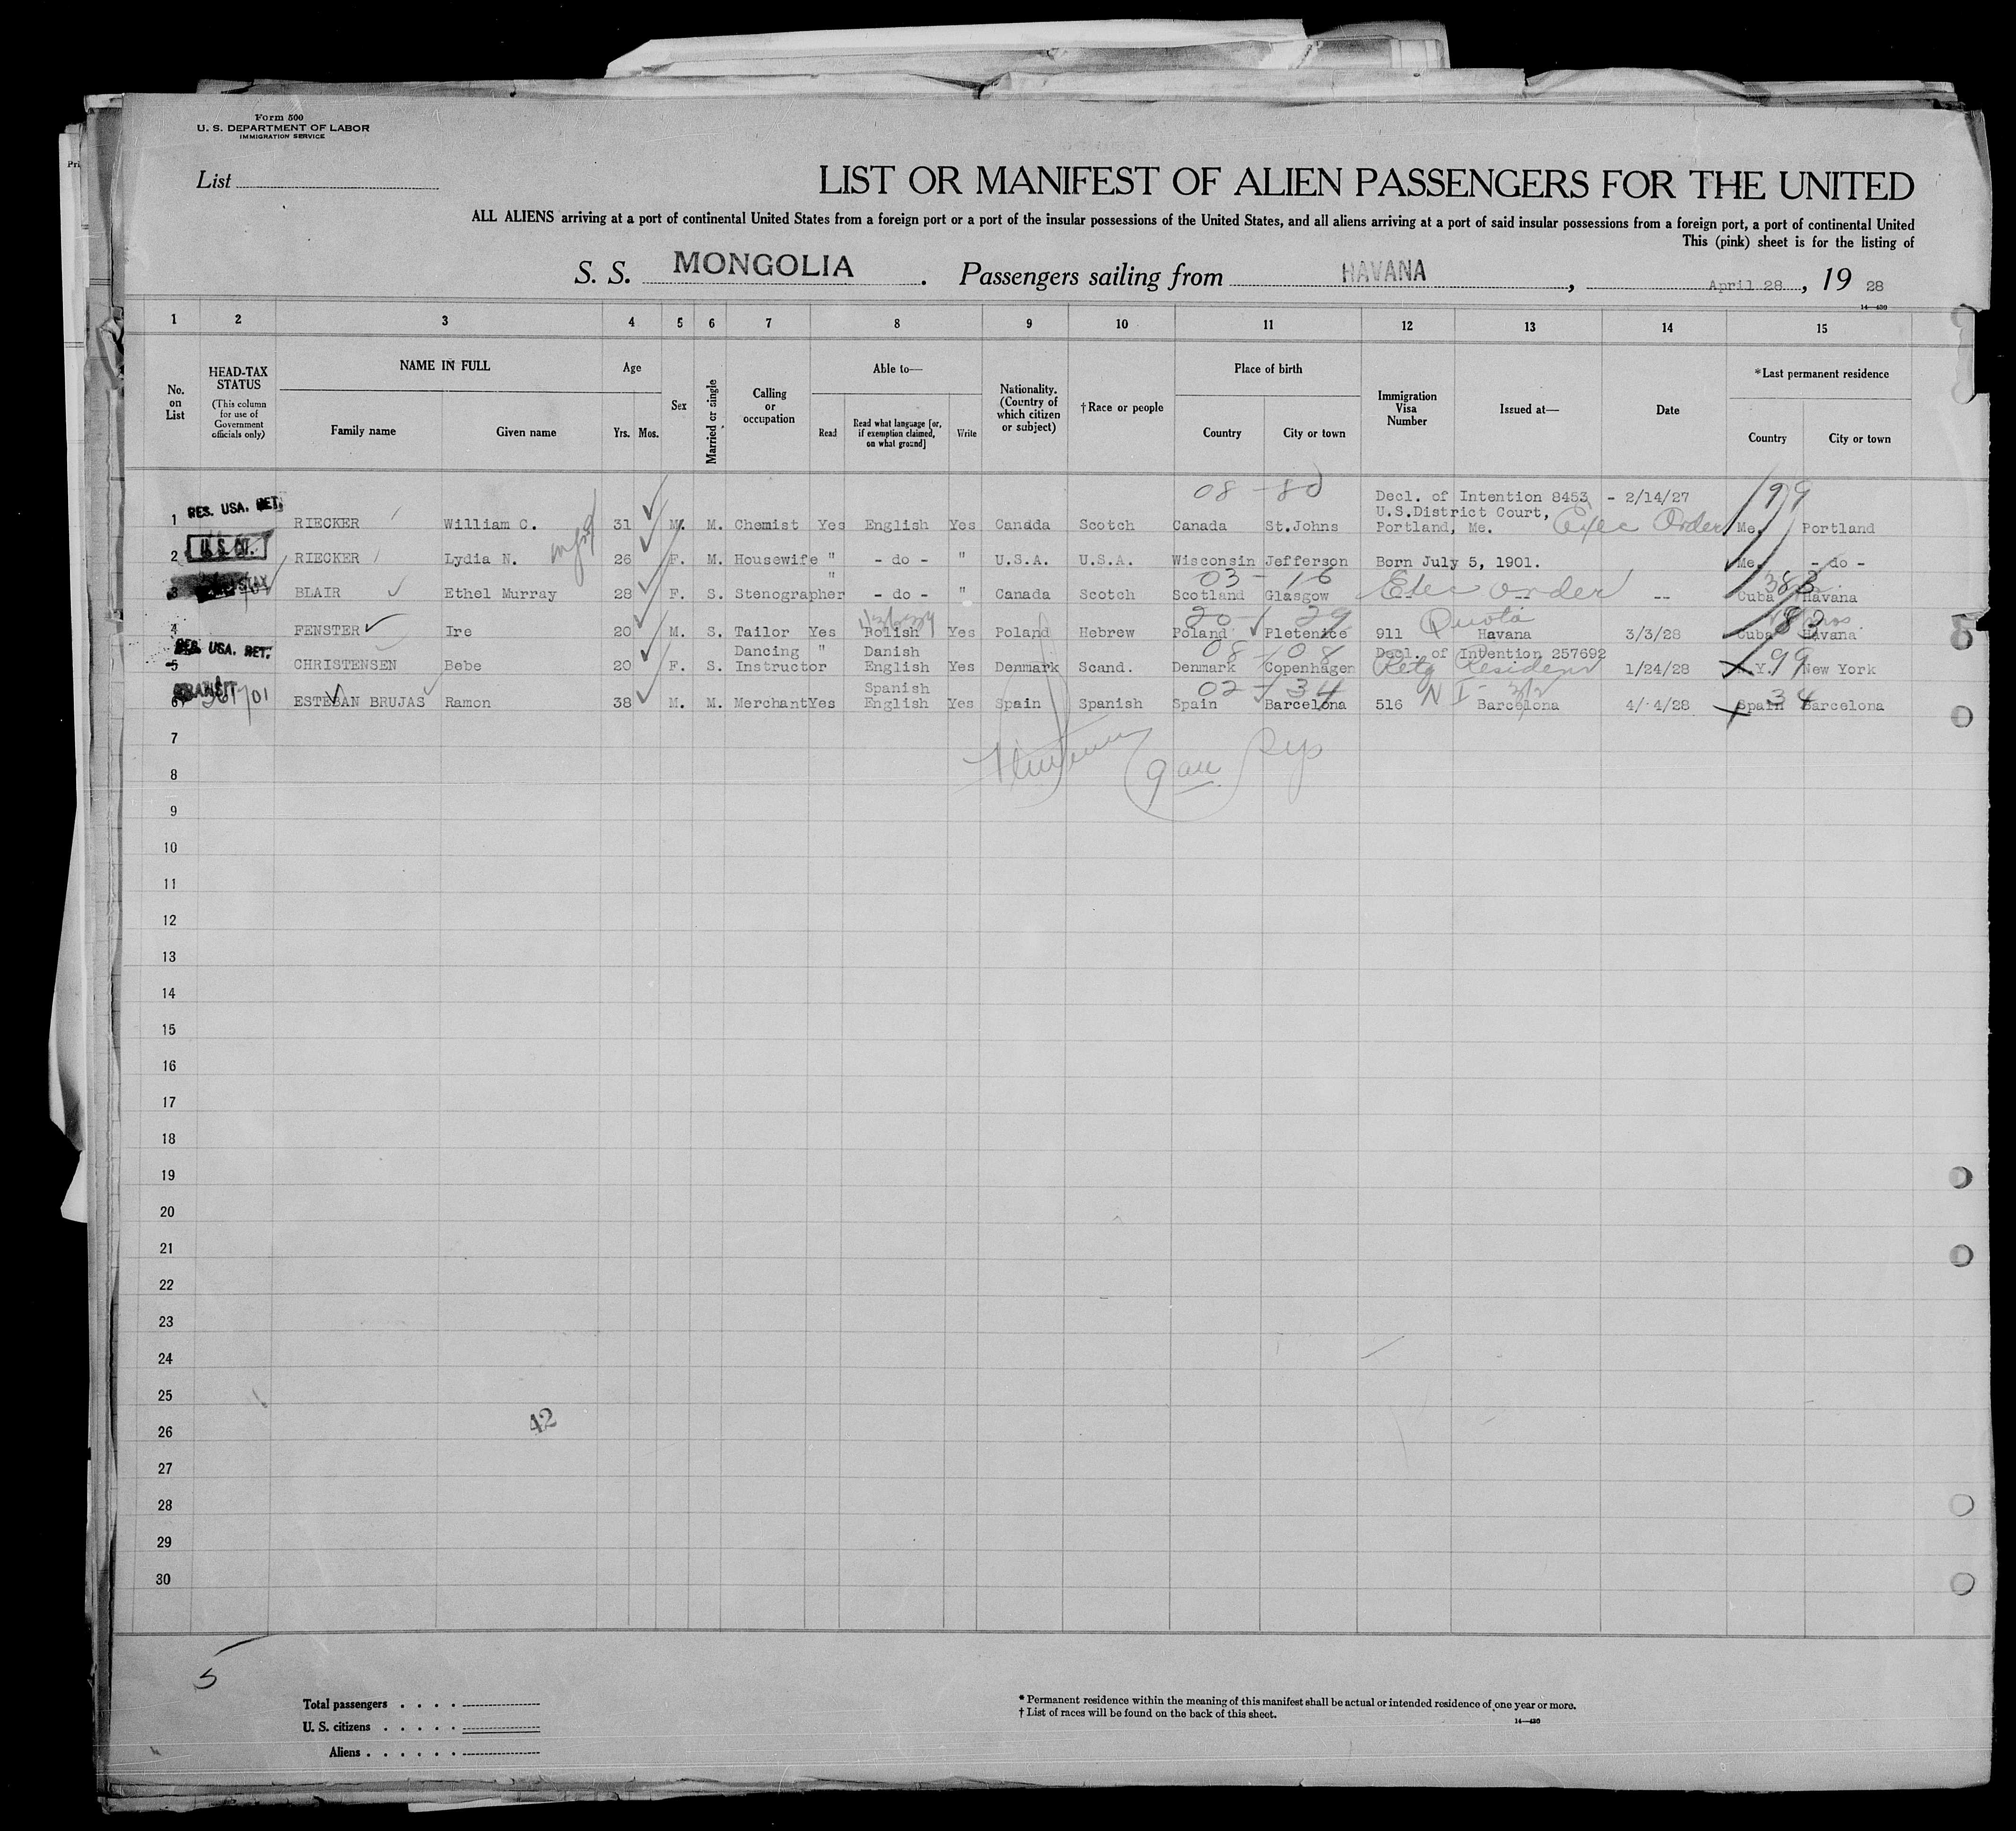 Form 500
U. S. DEPARTMENT OF LABOR
IMMIGRATION SERVICE
List
LIST OR MANIFEST OF ALIEN PASSENGERS FOR THE UNITED
ALL ALIENS arriving at a port of continental United States from a foreign port or a port of the insular possessions of the United States, and all aliens arriving at a port of said insular possessions from a foreign port, a port of continental United
This (pink) sheet is for the listing of
S. S. MONGOLIA . Passengers sailing from HAVANA , April 28 , 19 28
14—430
1 2 3 4 5 6 7 8 9 10 11 12 13 14 15
No. on List
HEAD-TAX STATUS (This column for use of Government officials only)
NAME IN FULL
Family name Given name
Age
Yrs. Mos.
Sex
Married or single
Calling or occupation
Able to—
Read Read what language [or, if exemption claimed, on what ground] Write
Nationality. (Country of which citizen or subject)
†Race or people
Place of birth
Country City or town
Immigration Visa Number
Issued at—
Date
*Last permanent residence
Country City or town
08 - 80 Decl. of Intention 8453 - 2/14/27
RES. USA. RET. U.S.District Court,
1 RIECKER William C. 31 M. M. Chemist Yes English Yes Canada Scotch Canada St.Johns Portland, Me. Exec Order Me. 199 Portland
2 U.S. CIT. RIECKER Lydia N. 26 F. M. Housewife " - do - " U.S.A. U.S.A. Wisconsin Jefferson Born July 5, 1901. Me. - do -
03 - 16
3 BLAIR Ethel Murray 28 F. S. Stenographer " - do - " Canada Scotch Scotland Glasgow Exec order -- Cuba 383 Havana
20 - 29 Quota
4 FENSTER Ire 20 M. S. Tailor Yes Polish Yes Poland Hebrew Poland Pletenice 911 Havana 3/3/28 Cuba 83 Havana
RES. USA. RET. Dancing " Danish 08 - 08 Decl. of Intention 257692
5 CHRISTENSEN Bebe 20 F. S. Instructor English Yes Denmark Scand. Denmark Copenhagen Retg Resident 1/24/28 N.Y. 99 New York
TRANSIT Spanish 02 - 34 N I - 3/2
6 ESTEBAN BRUJAS Ramon 38 M. M. Merchant Yes English Yes Spain Spanish Spain Barcelona 516 Barcelona 4/ 4/28 Spain 34 Barcelona
7
8
9
10
11
12
13
14
15
16
17
18
19
20
21
22
23
24
25
26 42
27
28
29
30
5
Total passengers . . . .
U. S. citizens . . . . .
Aliens . . . . . .
* Permanent residence within the meaning of this manifest shall be actual or intended residence of one year or more.
† List of races will be found on the back of this sheet.
14—430